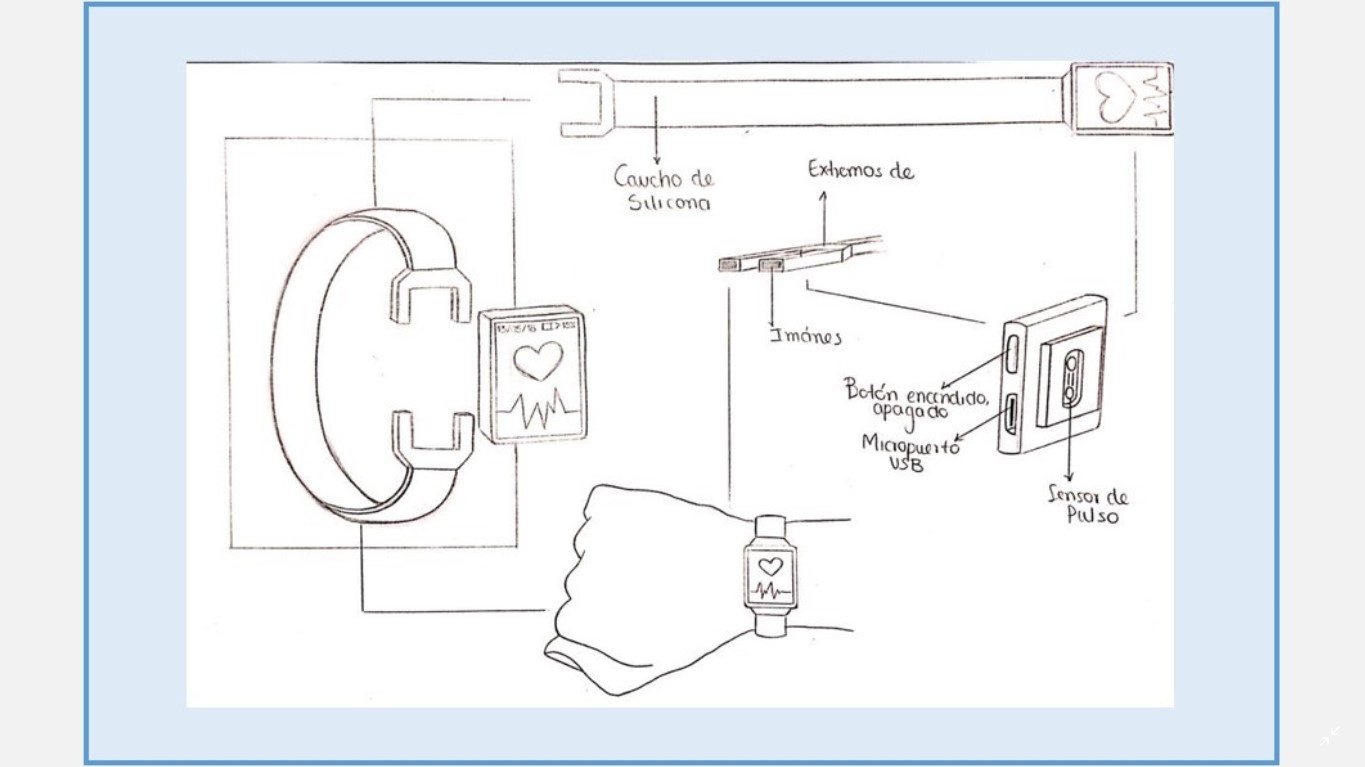 Caucho de
Silicona
Extremos de
Imánes
Botón encendido,
apagado
Micropuerto
USB
Sensor de
Pulso